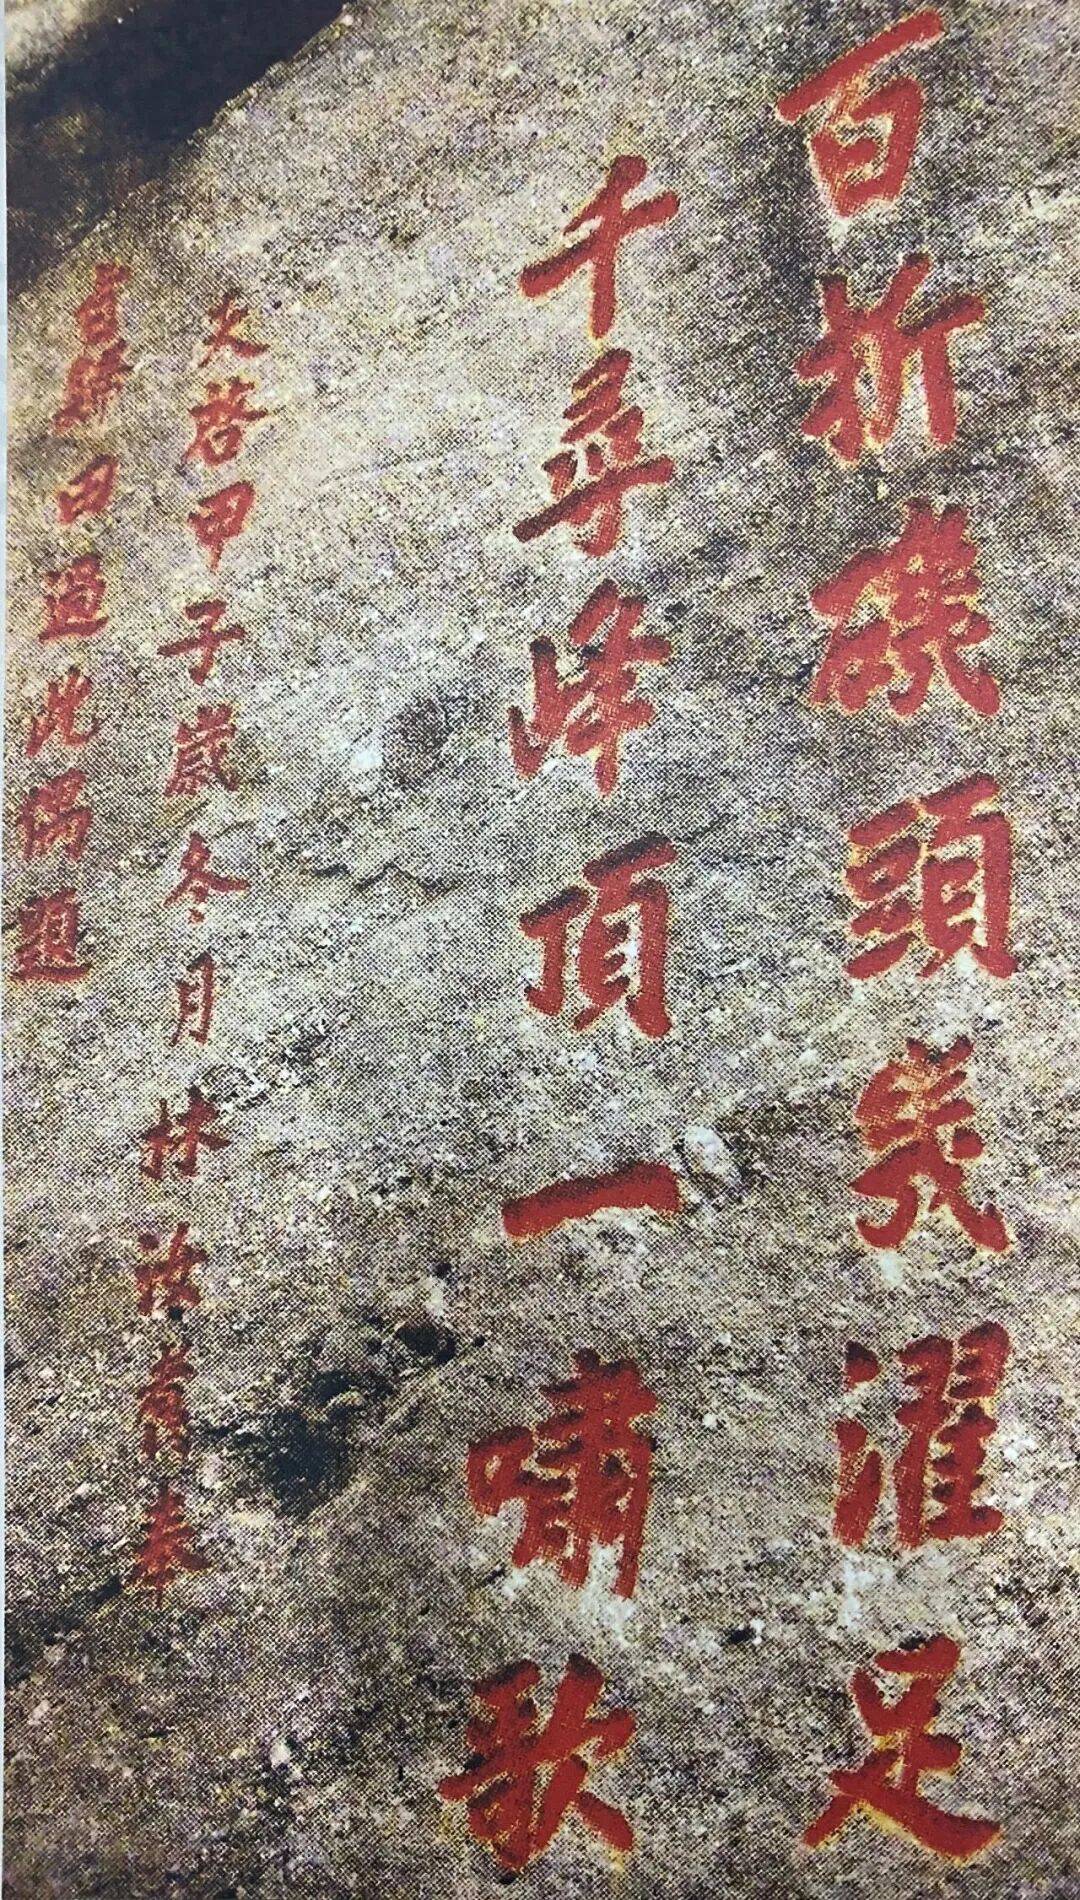 百折磯頭幾濯足
千尋峰頂一嘯歌
天啓甲子歲冬月林汝翥奉
旨歸田過此偶題